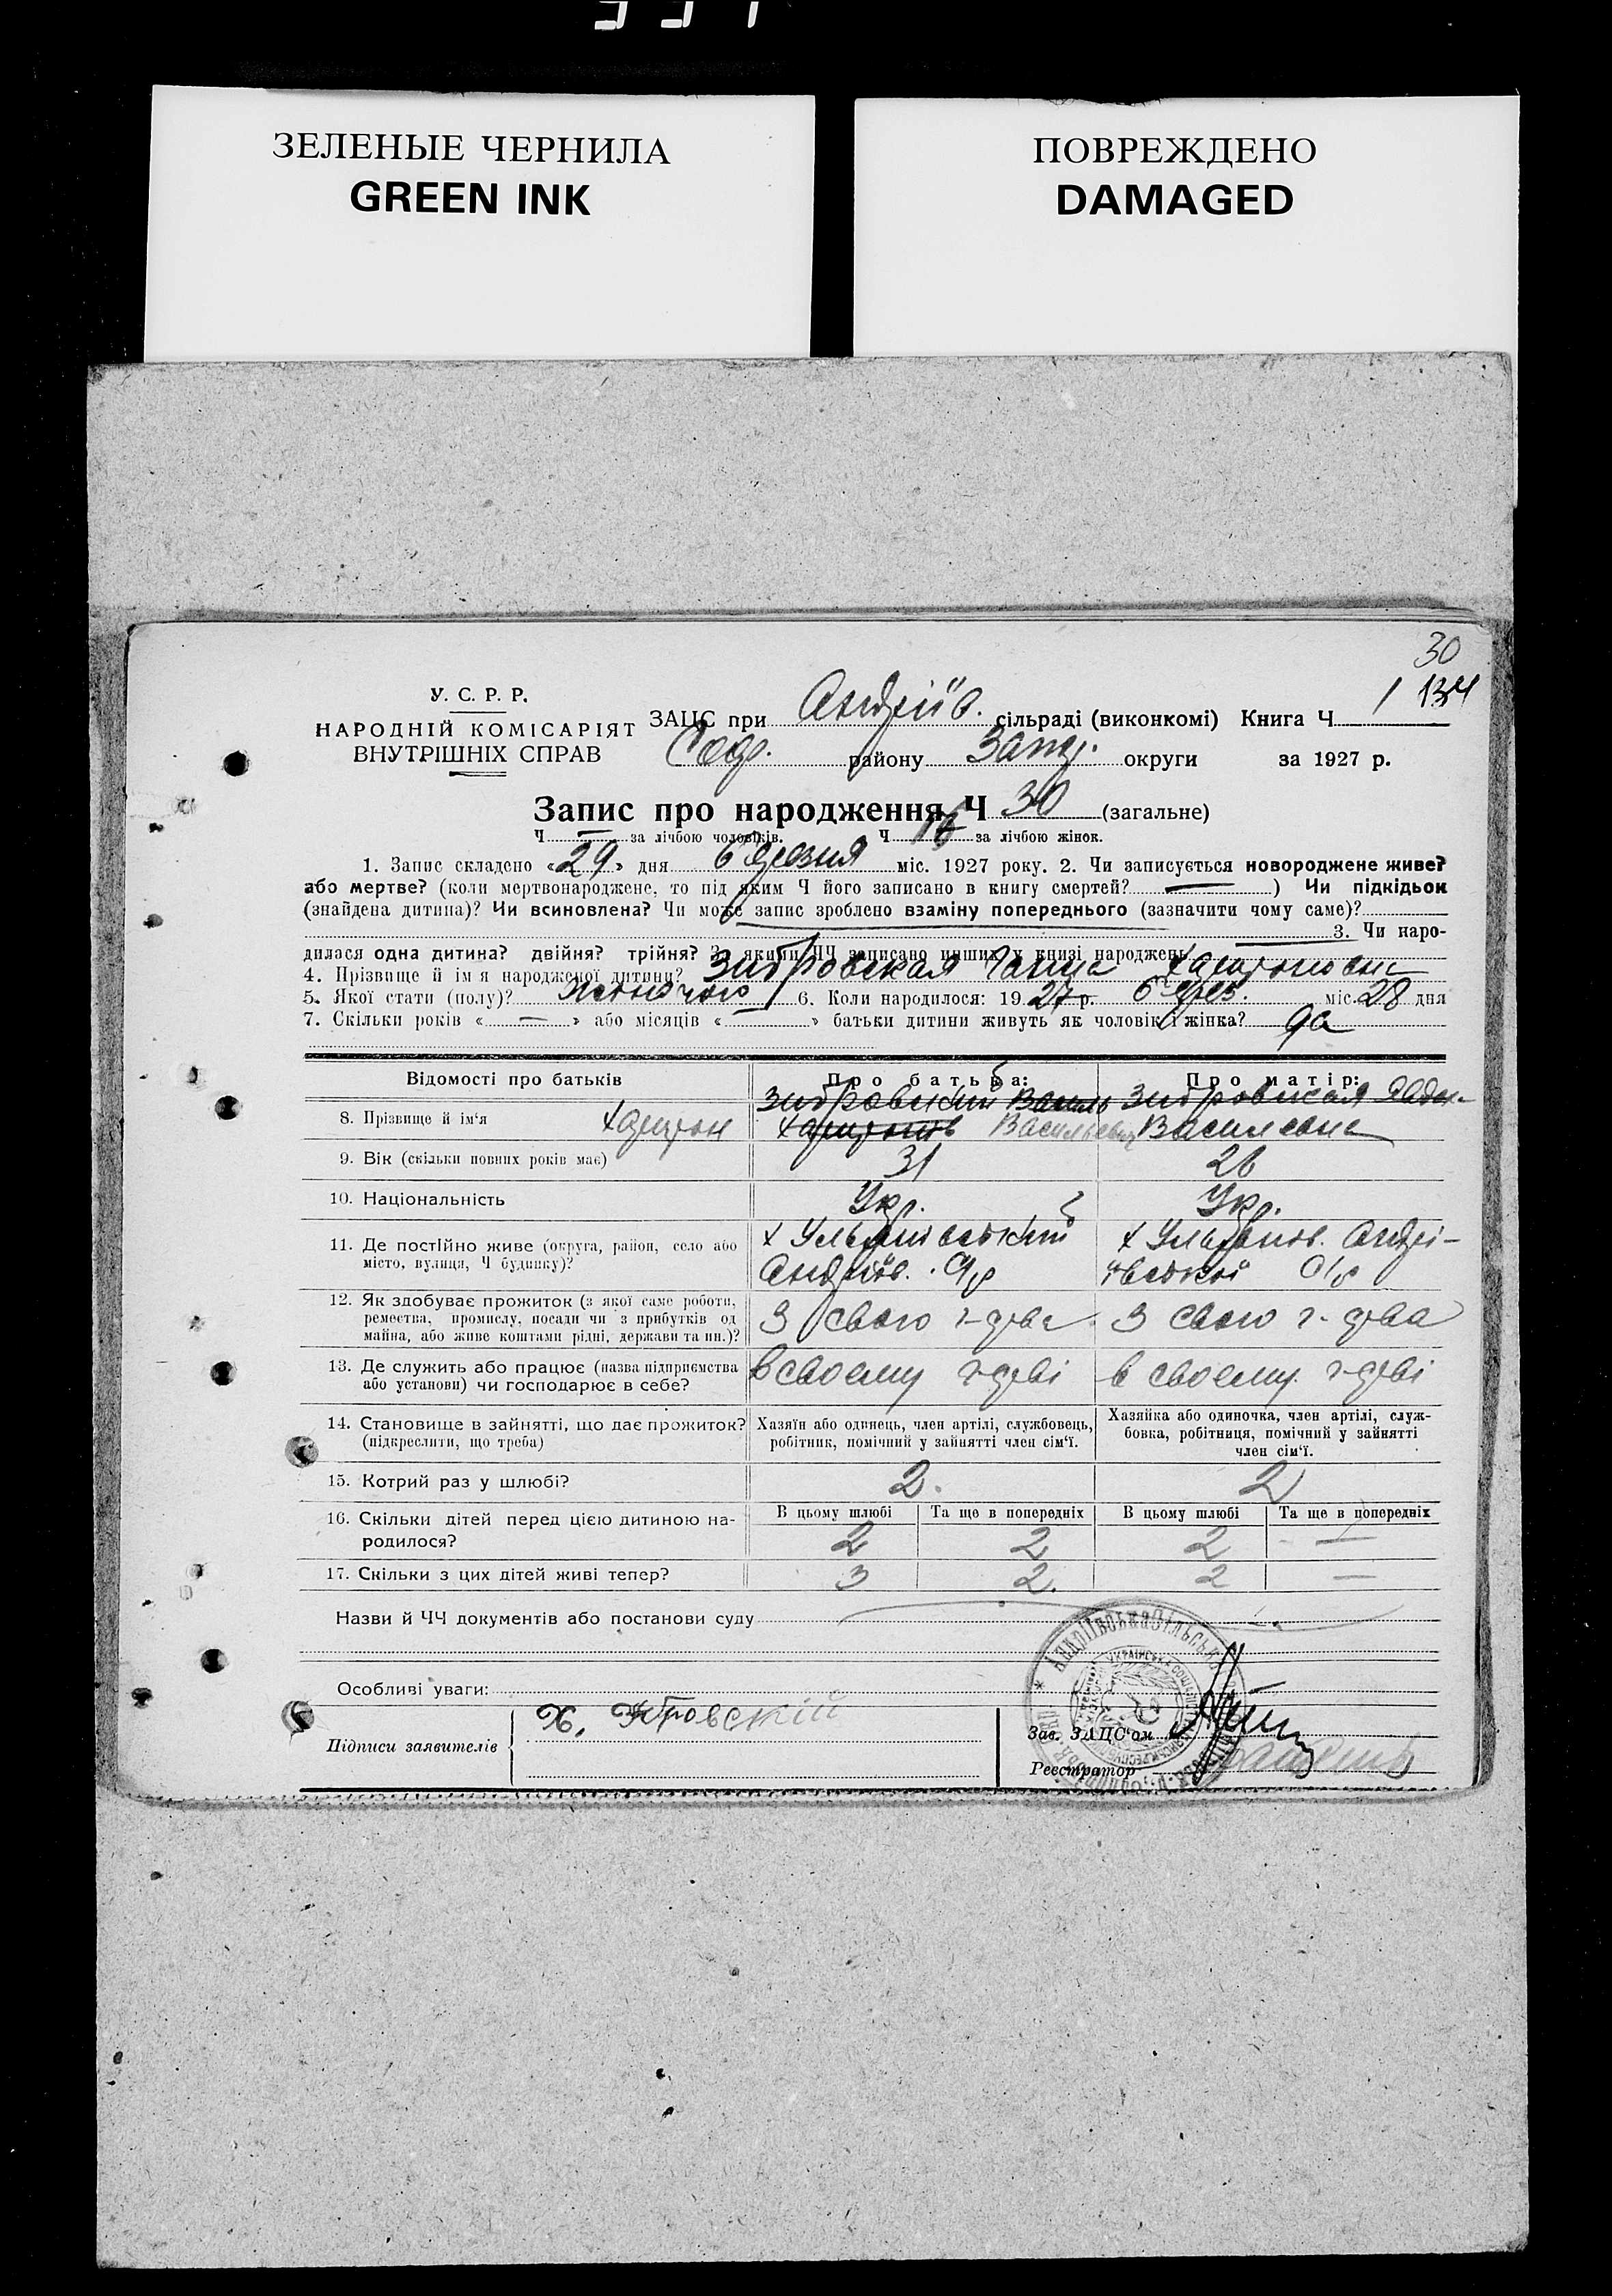 ЗЕЛЕНЫЕ ЧЕРНИЛА
GREEN INK
ПОВРЕЖДЕНО
DAMAGED
30
1 134
У. С. Р. Р.
НАРОДНІЙ КОМІСАРІЯТ
ВНУТРІШНІХ СПРАВ
ЗАЦС при Андріїв. сільраді (виконкомі) Книга Ч
Соф. району Запор. округи за 1927 р.
Запис про народження Ч 30 (загальне)
Ч — за лічбою чоловіків. Ч 16 за лічбою жінок.
1. Запис складено «29» дня березня міс. 1927 року. 2. Чи записується новороджене живе?
або мертве? (коли мертвонароджене, то під яким Ч його записано в книгу смертей? — ) Чи підкідьок
(знайдена дитина)? Чи всиновлена? Чи може запис зроблено взаміну попереднього (зазначити чому саме)?
3. Чи наро-
дилася одна дитина? двійня? трійня? З якими ЧЧ записано инших у книзі народжень
4. Прізвище й ім'я народженої дитини? Зибровская Ганна Харитоновна
5. Якої статі (полу)? Жіночого 6. Коли народилося: 1927 р. берез. міс. 28 дня
7. Скільки років « — » або місяців « — » батьки дитини живуть як чоловік і жінка? 9а
Відомості про батьків
Про батька:
Про матір:
8. Прізвище й ім'я
Харитон
Зибровский Василь
Харитонів Васильевич
Зибровская
Василевна
9. Вік (скільки повних років має)
31
26
10. Національність
Укр.
Укр.
11. Де постійно живе (округа, район, село або
місто, вулиця, Ч будинку)?
х Ульянівський
Андріїв. с/р
х Ульянов. Андрі-
ївської с/р
12. Як здобуває прожиток (з якої саме роботи,
ремества, промислу, посади чи з прибутків од
майна, або живе коштами рідні, держави та ин.)?
З свого г-дрва
З свого г-дрва
13. Де служить або працює (назва підприємства
або установи) чи господарює в себе?
в своему г-дрві
в своему г-дрві
14. Становище в зайнятті, що дає прожиток?
(підкреслити, що треба)
Хазяїн або одинець, член артілі, службовець,
робітник, помічний у зайнятті член сім'ї.
Хазяйка або одиночка, член артілі, служ-
бовка, робітниця, помічний у зайнятті
член сім'ї.
15. Котрий раз у шлюбі?
2.
2
16. Скільки дітей перед цією дитиною на-
родилося?
В цьому шлюбі Та ще в попередніх В цьому шлюбі Та ще в попередніх
2 2 2 —
17. Скільки з цих дітей живі тепер?
3 2. 2 —
Назви й ЧЧ документів або постанови суду
Особливі уваги:
Підписи заявителів
Зав. ЗАЦС'ом
Реєстратор